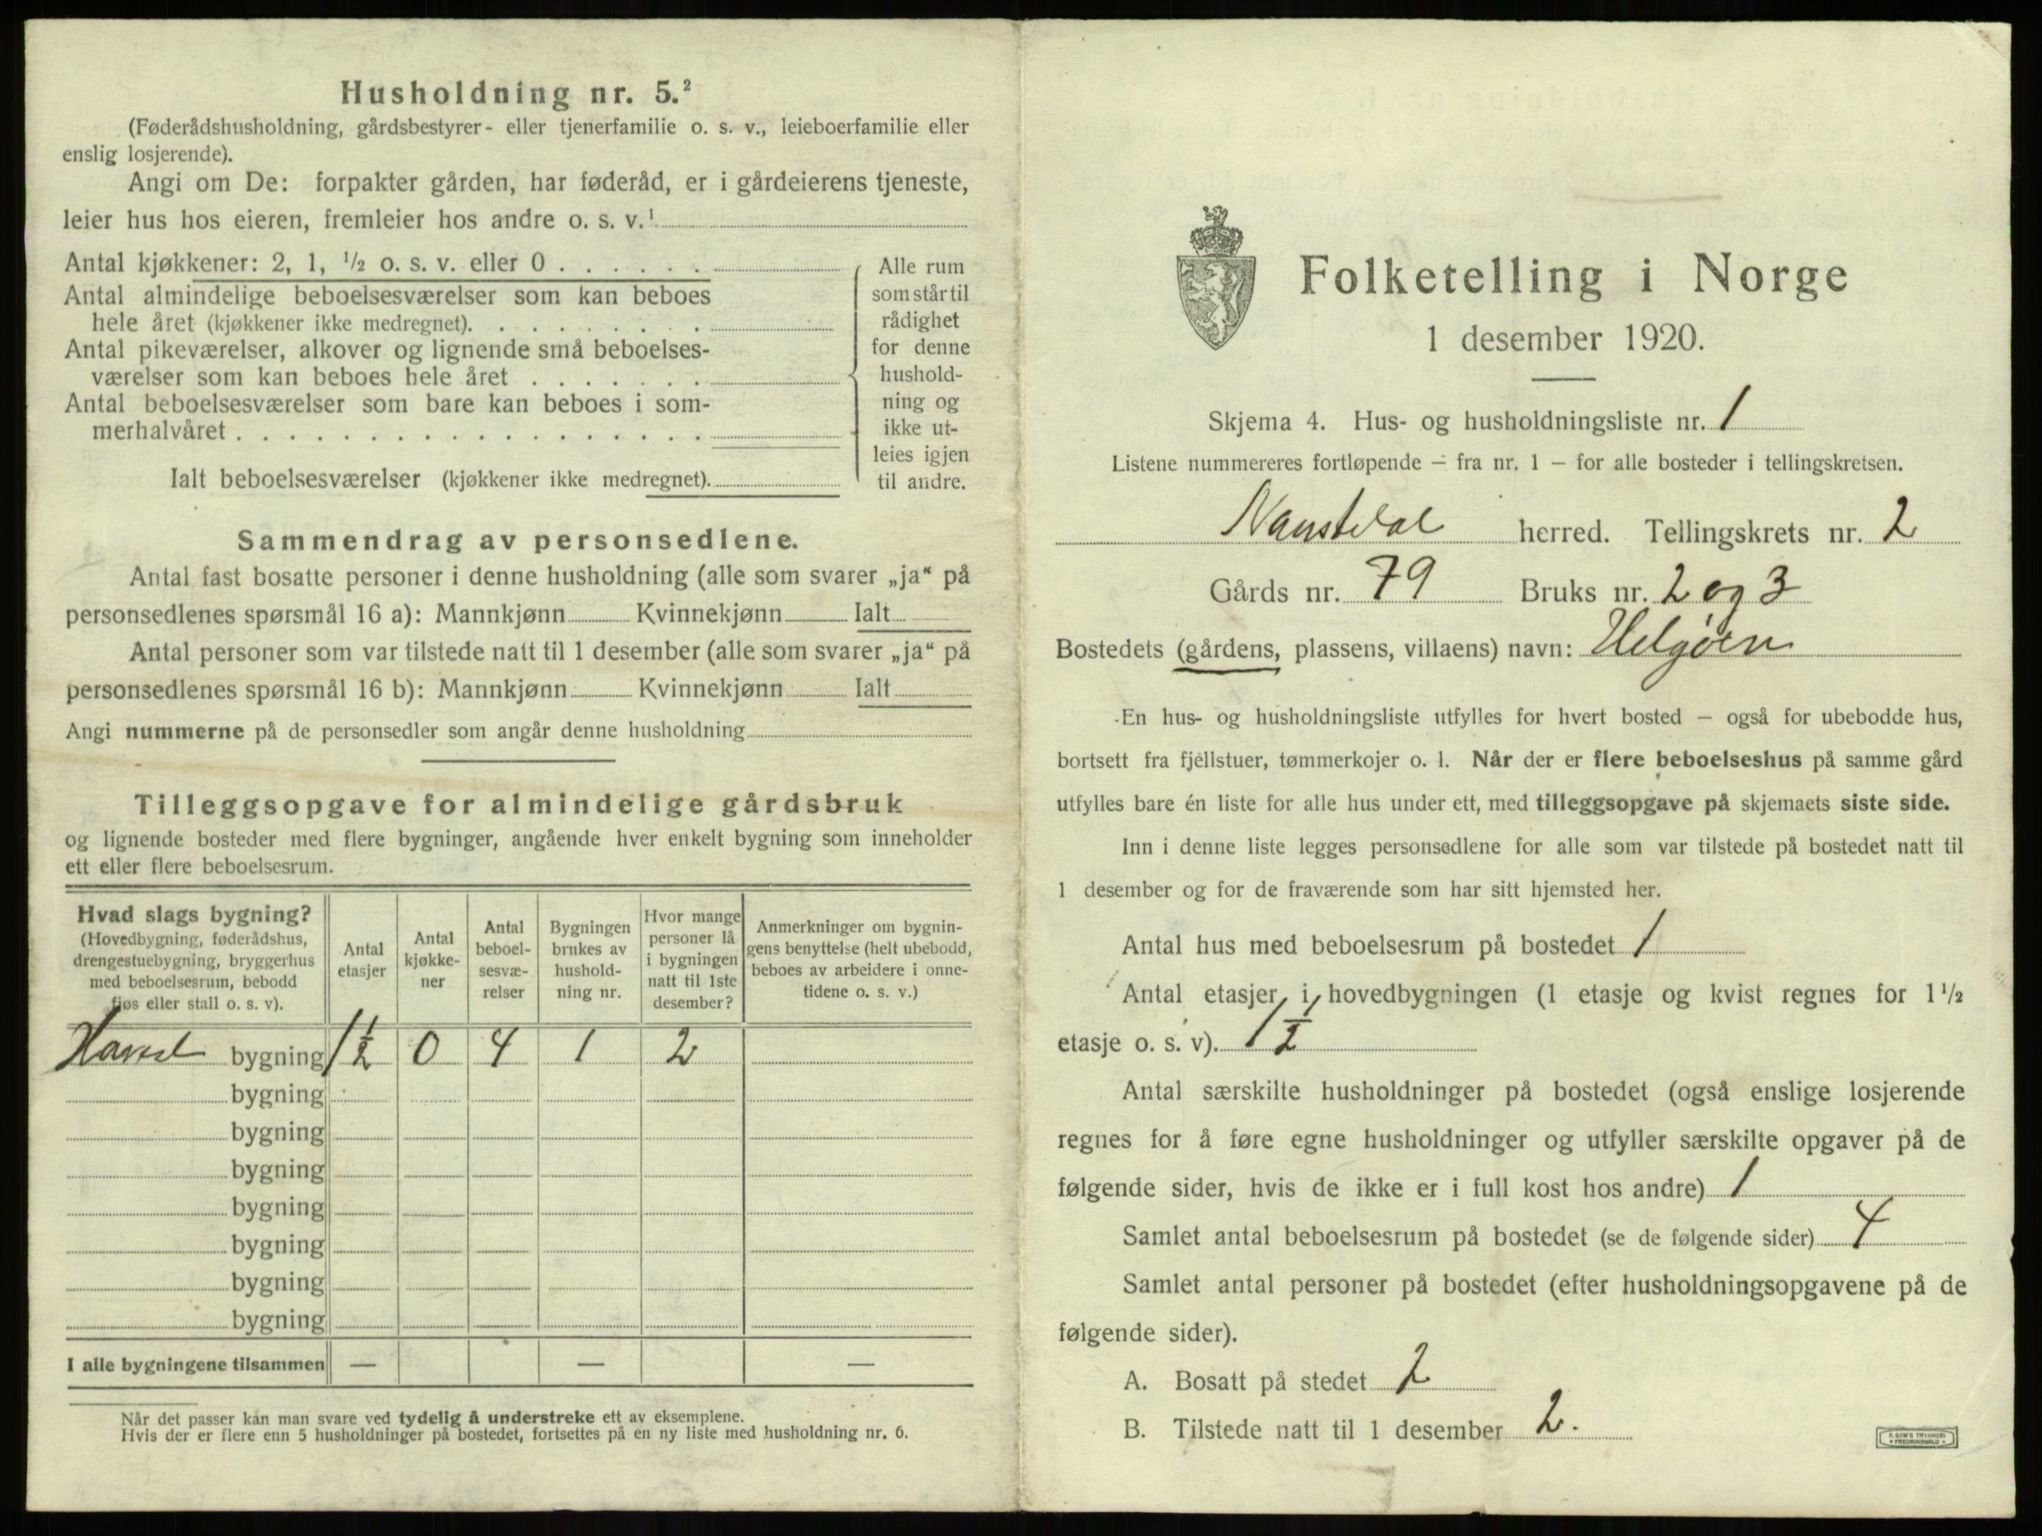 Husholdning nr. 5.²
(Føderådshusholdning, gårdsbestyrer- eller tjenerfamilie o. s. v., leieboerfamilie eller
enslig losjerende).
Angi om De: forpakter gården, har føderåd, er i gårdeierens tjeneste,
leier hus hos eieren, fremleier hos andre o. s. v.¹
Antal kjøkkener: 2, 1, ½ o. s. v. eller 0 . . . . . .
Antal almindelige beboelsesværelser som kan beboes
hele året (kjøkkener ikke medregnet). . . . . . . . .
Antal pikeværelser, alkover og lignende små beboelses-
værelser som kan beboes hele året . . . . . . .
Antal beboelsesværelser som bare kan beboes i som-
merhalvåret . . . . . . . . . . . . . . . . . .
Ialt beboelsesværelser (kjøkkener ikke medregnet).
Alle rum
som står til
rådighet
for denne
hushold-
ning og
ikke ut-
leies igjen
til andre.
Sammendrag av personsedlene.
Antal fast bosatte personer i denne husholdning (alle som svarer „ja“ på
personsedlenes spørsmål 16 a): Mannkjønn Kvinnekjønn Ialt
Antal personer som var tilstede natt til 1 desember (alle som svarer „ja“ på
personsedlenes spørsmål 16 b): Mannkjønn Kvinnekjønn Ialt
Angi nummerne på de personsedler som angår denne husholdning
Tilleggsopgave for almindelige gårdsbruk
og lignende bosteder med flere bygninger, angående hver enkelt bygning som inneholder
ett eller flere beboelsesrum.
Hvad slags bygning?
(Hovedbygning, føderådshus,
drengestuebygning, bryggerhus
med beboelsesrum, bebodd
fjøs eller stall o. s. v).
Antal
etasjer
Antal
kjøkke-
ner
Antal
beboel-
sesvæ-
relser
Bygningen
brukes av
hushold-
ning nr.
Hvor mange
personer lå
i bygningen
natt til 1ste
desember?
Anmerkninger om bygnin-
gens benyttelse (helt ubebodd,
beboes av arbeidere i onne-
tidene o. s. v.)
bygning 1½ 0 4 1 2
bygning
bygning
bygning
bygning
bygning
bygning
bygning
I alle bygningene tilsammen — — —
Når det passer kan man svare ved tydelig å understreke ett av eksemplene.
Hvis der er flere enn 5 husholdninger på bostedet, fortsettes på en ny liste med husholdning nr. 6.
Folketelling i Norge
1 desember 1920.
Skjema 4. Hus- og husholdningsliste nr. 1
Listene nummereres fortløpende – fra nr. 1 – for alle bosteder i tellingskretsen.
Naustdal herred. Tellingskrets nr. 2
Gårds nr. 79 Bruks nr. 2 og 3
Bostedets (gårdens, plassens, villaens) navn: Helgøen
En hus- og husholdningsliste utfylles for hvert bosted – også for ubebodde hus,
bortsett fra fjellstuer, tømmerkojer o. l. Når der er flere beboelseshus på samme gård
utfylles bare én liste for alle hus under ett, med tilleggsopgave på skjemaets siste side.
Inn i denne liste legges personsedlene for alle som var tilstede på bostedet natt til
1 desember og for de fraværende som har sitt hjemsted her.
Antal hus med beboelsesrum på bostedet 1
Antal etasjer i hovedbygningen (1 etasje og kvist regnes for 1½
etasje o. s. v). 1½
Antal særskilte husholdninger på bostedet (også enslige losjerende
regnes for å føre egne husholdninger og utfyller særskilte opgaver på de
følgende sider, hvis de ikke er i full kost hos andre) 1
Samlet antal beboelsesrum på bostedet (se de følgende sider) 4
Samlet antal personer på bostedet (efter husholdningsopgavene på de
følgende sider).
A. Bosatt på stedet 2
B. Tilstede natt til 1 desember 2.